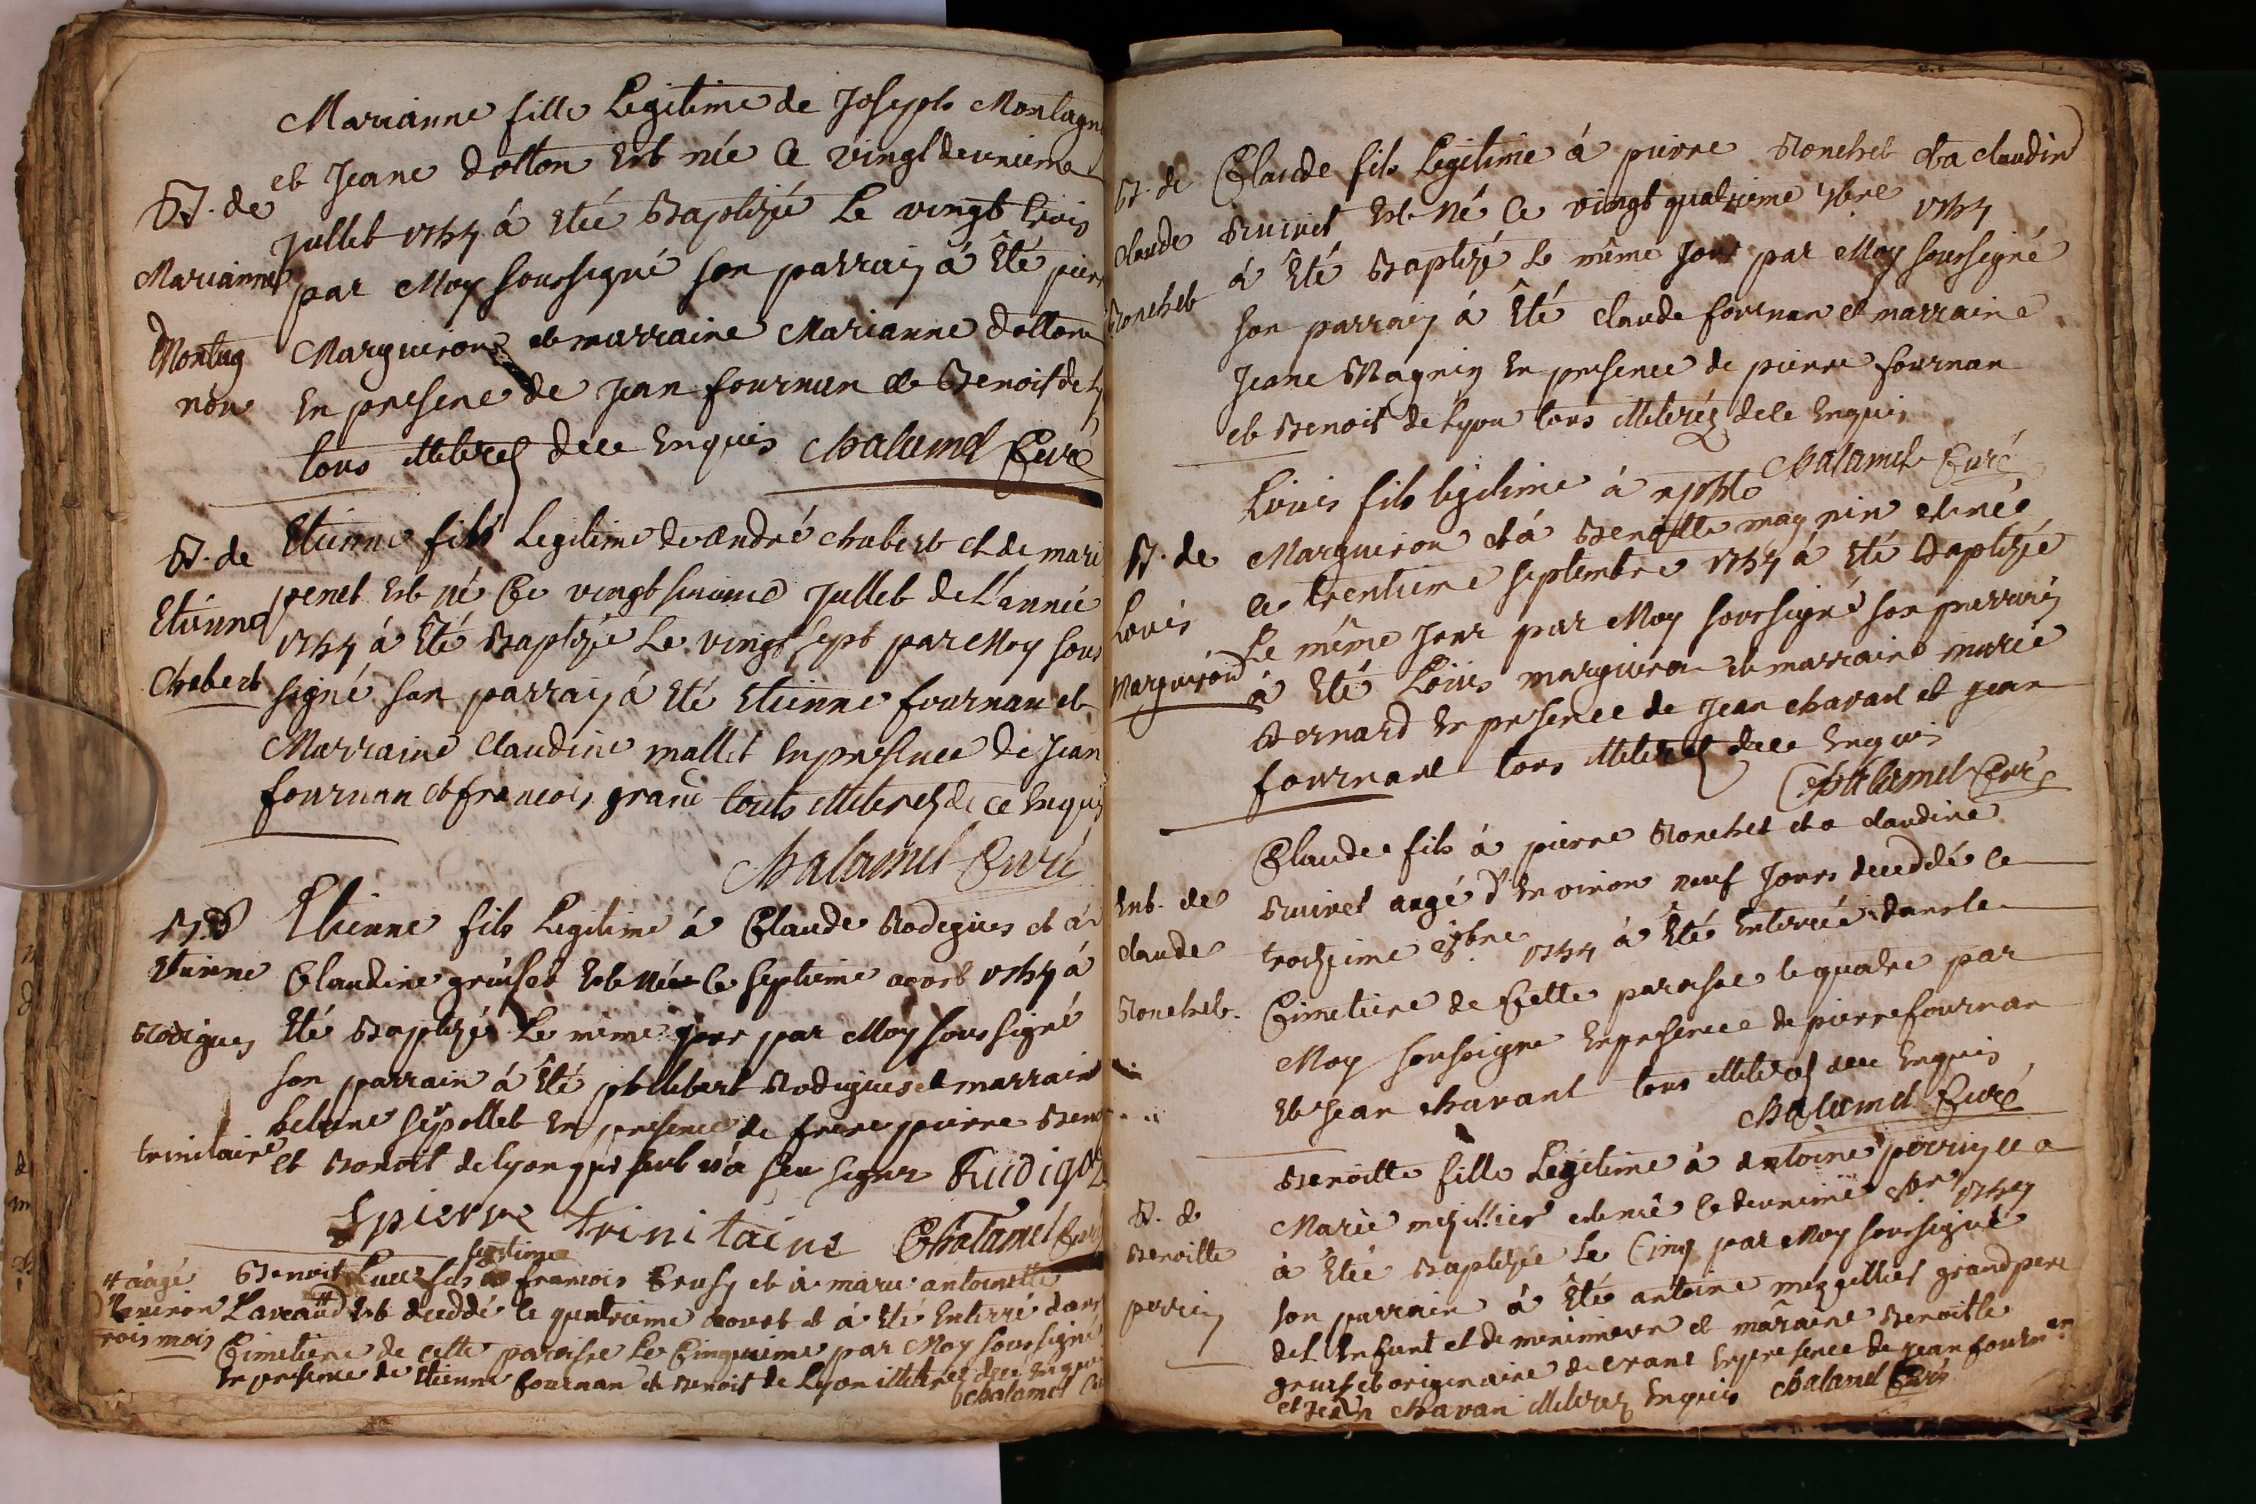 Marianne fille Legitime de Joseph Montagn
et Jeane dotton est née le vingt deuxieme
B. de
Jullet 1754 á etée Baptizée Le vingt trois
Marianne
par Moy soussigné son parrain á Eté pierr
Montag
Margueron et marraine Marianne dotton
non
En presene de Jean fournan et Benoit de
tous illiterez dece Enquis Chalamel Curé
Etienne fils Legitime de André chabert et de mari
B. de
penet est né Ce vingt sixieme Jullet de L'année
Etienne
1754 á Eté Baptizé Le vingt sept par Moy sous
Chabert
signé son parrain á Eté Etienne fournan et
Marraine Claudine mallet En presence De Jean
fournan et francois grand touts illiterez de ce Enquis
Chalamel Curé
B. d
Etienne fils Legitime á Claude Rodigues et á
Etienne
Claudine greuset est née le septieme aoust 1754 á
Rodigues
Eté Baptizé Le même jour par Moy soussigné
son parrain á Eté philibert Rodigues et marrain
helene sepollet En presence de frere pierre Beno
trinitaire
et Benoit de lyon qui seul n'a seu signer Rudigoz
f pierre trinitaire Chalamel Curé
legitime
# aagé
Benoit Luce fils á francois Crusy et á marie antoinette
D'environ
Laveaud # est deceddé le quatrieme aoust et á Eté Enterré dans
trois mois
Cimetiere de cette paroisse Le Cinquieme par Moy soussigné
En presence de Etienne fournan et Benoit de Lyon illiterez dece Enquis
Chalamel Cu
B. de
Claude fils Legitime á pierre Ronchet et a claudine
Claude
Buivet est Né le vingt quatrieme 7bre 1754
á Eté Baptizé le même Jour par Moy soussigné
Ronchet
son parrain á Eté claude fournan et marraine
Jeane Magnin En presence de pierre fournan
et Benoit de Lyon tous illiteréz dece Enquis
Chalamel Curé
Louis fils legitime á
B. de
Margueron et á Benoitte magnin et né
Louis
le trentieme septembre 1754 á Eté Baptizé
Le même Jour par Moy soussigné son parrain
Margueron
á Eté Louis margueron et marraine marie
Bernard En presence de Jean chavant et jean
fournant tous illiterez dece Enquis
Chalamel Curé
Claude fils á pierre Ronchet et a claudine
Ent. de
Buivet aagé d'Environ neuf Jours deceddé le
claude
troisieme 8bre 1754 á Eté Enterrée dans le
Ronchet.
Cimetiere de Cette paroisse le quatre par
Moy soussigne En presence de pierre fournan
Et Jean chavant tous illiterez dece Enquis
Chalamel Curé
Benoitte fille Legitime á Antoine perrin et a
B. de
Marie mezillier et née le deuxieme 1754
Benoitte
á Etée Baptizée Le Cinq par Moy soussigné
perrin
son parrain á Eté antoine mezillier grandpere
de L'Enfant et de et maraine Benoitte
greuset originaire de crane En presence de jean fournan
et Jean chavan illiterez Enquis Chalamel Curé